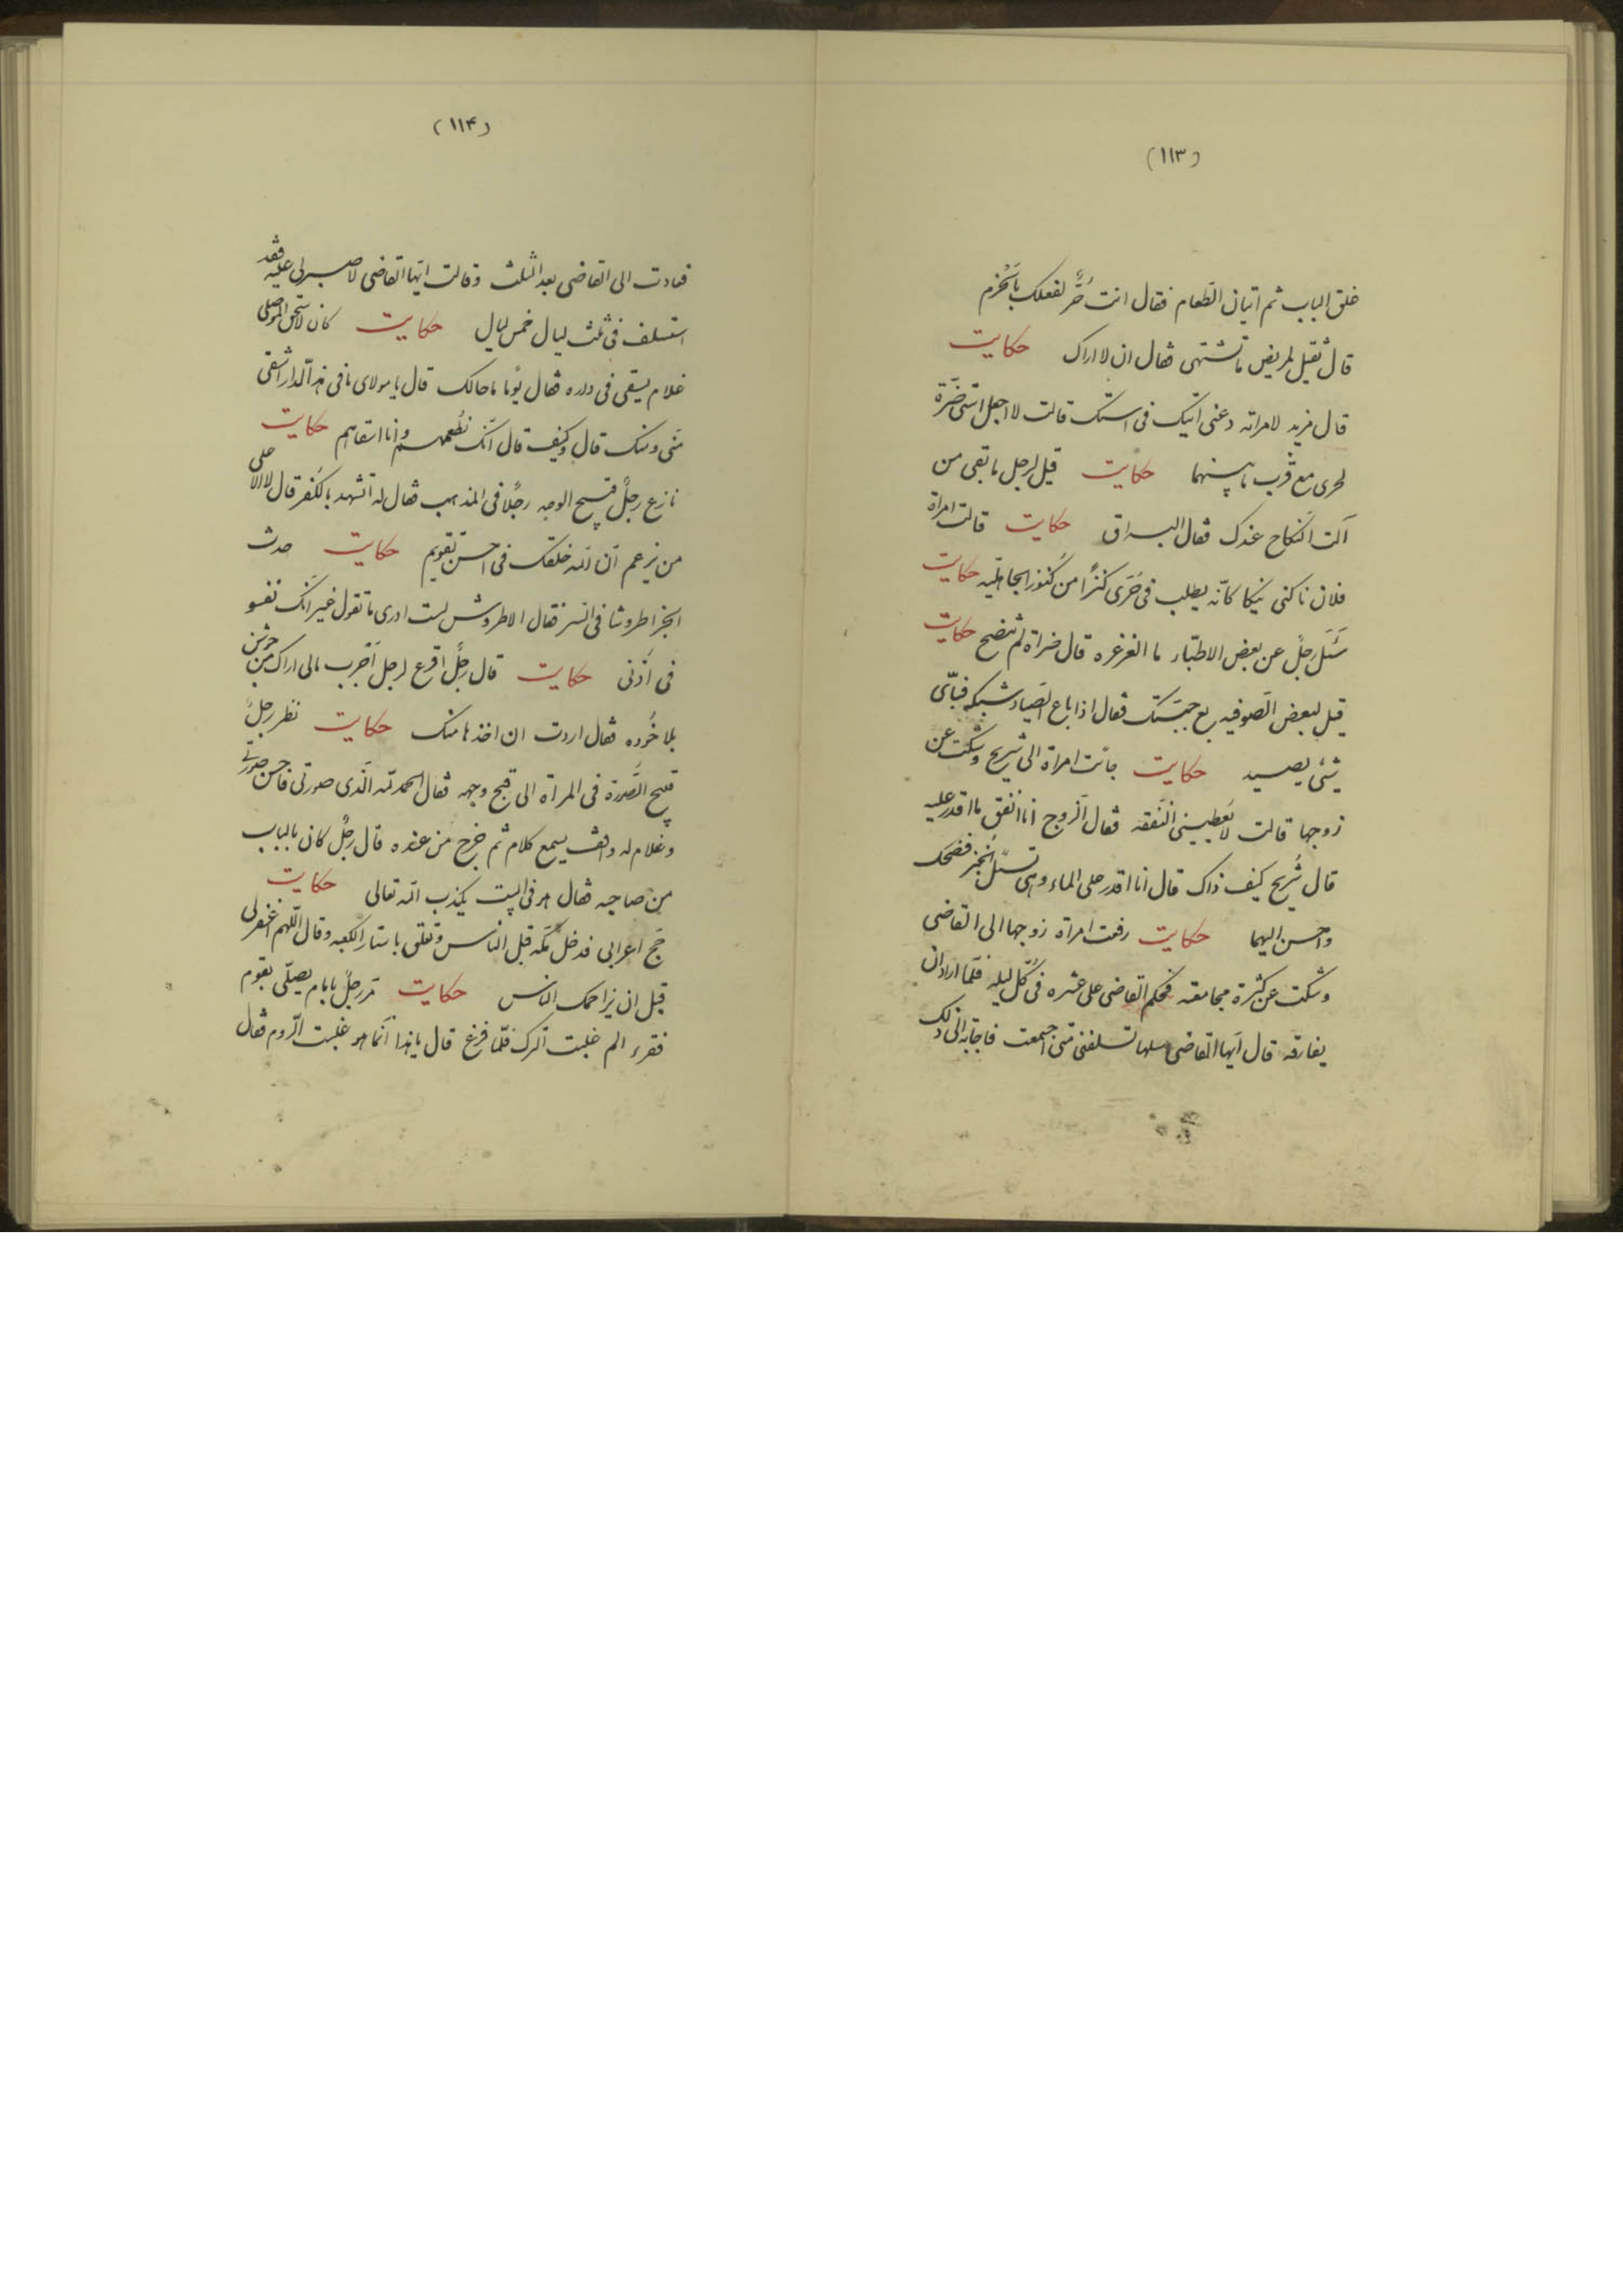 (۱۱۳)
غلق الباب ثم اتیان الطعام فقال انت حُرٌّ لفعلک بالحَزم
قال ثقیل لمریض ما تشتهی فقال ان لا اراک حکایت
قال مزید لامراته دعنی انیک فی استک قالت لا اجعل استی ضَرّة
لحری مع قرب ما بینهما حکایت قیل لرجل ما بقی من
آلت النکاح عندک فقال البزاق حکایت قالت امراة
فلان ناکنی نیکا کانّه یطلب فی حَری کنزًا من کنوز الجاهلیه حکایت
سَئَل رجلٌ عن بعض الاطبّاء ما الغرغره قال ضراة لم تنضج حکایت
قیل لبعض الصوفیه بع جبّتک فقال اذا باع الصیاد شبکه فبایّ
شئی یصید حکایت جائت امراة الی شریح وشکت عن
زوجها قالت لا یُعطینی النفقه فقال الزوج انا انفق ما اقدر علیه
قال شُریح کیف ذاک قال انا اقدر علی الماء وهی تسئل الخبز فضحک
واحسن الیهما حکایت رفعت امراة زوجها الی القاضی
وشکت عن کثرة مجامعته فحکم القاضی علی عشره فی کلّ لیله فلمّا ارادان
یفارقه قال ایّها القاضی سلها تسلفنی متی اجمعت فاجابته الی ذلک
(۱۱۴)
فعادت الی القاضی بعد الثلث وقالت ایّها القاضی لا صبر لی علیه فقد
استسلف فی ثلث لیال خمس لیال حکایت کان لاسحق الموصلی
غلام یسقی فی داره فقال یومًا ما حالک قال یا مولای ما فی هذا الدار اشقی
منّی ومنک قال وکیف قال انّک تُطعمهم وانا اسقاهم حکایت
نازع رجلٌ قبیح الوجه رجُلًا فی المذهب فقال له اتشهد بالکفر قال لا الا علی
من یزعم انّ الله خلقک فی احسن تقویم حکایت حدث
ابخر اطروشا فی السر فقال الاطروش لست ادری ما تقول غیر انّک تفسو
فی اُذنی حکایت قال رجلٌ اقرع لرجل اجرب مالی اراک من جوشن
بلا خُوده فقال اردت ان اخذها منک حکایت نظر رجلٌ
قبیح الصّورة فی المرآة الی قبح وجهه فقال الحمد لله الّذی صورنی فاحسن صورتی
وغلام له واقف یسمع کلام ثم خرج من عنده قال رجلٌ کان بالباب
من صاحبه فقال هو فی البیت یکذب الله تعالی حکایت
حَج اعرابی فدخل مکّه قبل الناس وتعلق باستار الکعبه وقال اللّهم اغفرلی
قبل ان یزاحمک الناس حکایت مَر رجلٌ بامام یصلّی بقوم
فقرء الم غلبت الترک فلّما فرغ قال یا هذا انّما هو غلبت الرّوم فقال